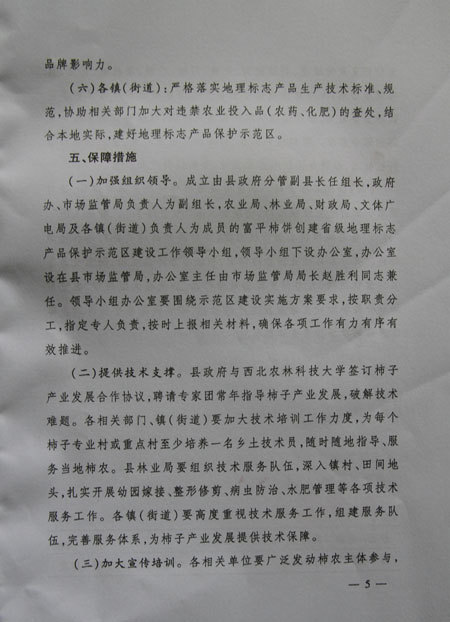 品牌影响力。
(六)各镇(街道):严格落实地理标志产品生产技术标准、规
范,协助相关部门加大对违禁农业投入品(农药、化肥)的查处,结
合本地实际,建好地理标志产品保护示范区。
五、保障措施
(一)加强组织领导。成立由县政府分管副县长任组长,政府
办、市场监管局负责人为副组长,农业局、林业局、财政局、文体广
电局及各镇(街道)负责人为成员的富平柿饼创建省级地理标志
产品保护示范区建设工作领导小组,领导小组下设办公室,办公室
设在县市场监管局,办公室主任由市场监管局局长赵胜利同志兼
任。领导小组办公室要围绕示范区建设实施方案要求,按职责分
工,指定专人负责,按时上报相关材料,确保各项工作有力有序有
效推进。
(二)提供技术支撑。县政府与西北农林科技大学签订柿子
产业发展合作协议,聘请专家团常年指导柿子产业发展,破解技术
难题。各相关部门、镇(街道)要加大技术培训工作力度,为每个
柿子专业村或重点村至少培养一名乡土技术员,随时随地指导、服
务当地柿农。县林业局要组织技术服务队伍,深入镇村、田间地
头,扎实开展幼园嫁接、整形修剪、病虫防治、水肥管理等各项技术
服务工作。各镇(街道)要高度重视技术服务工作,组建服务队
伍,完善服务体系,为柿子产业发展提供技术保障。
(三)加大宣传培训。各相关单位要广泛发动柿农主体参与,
— 5 —